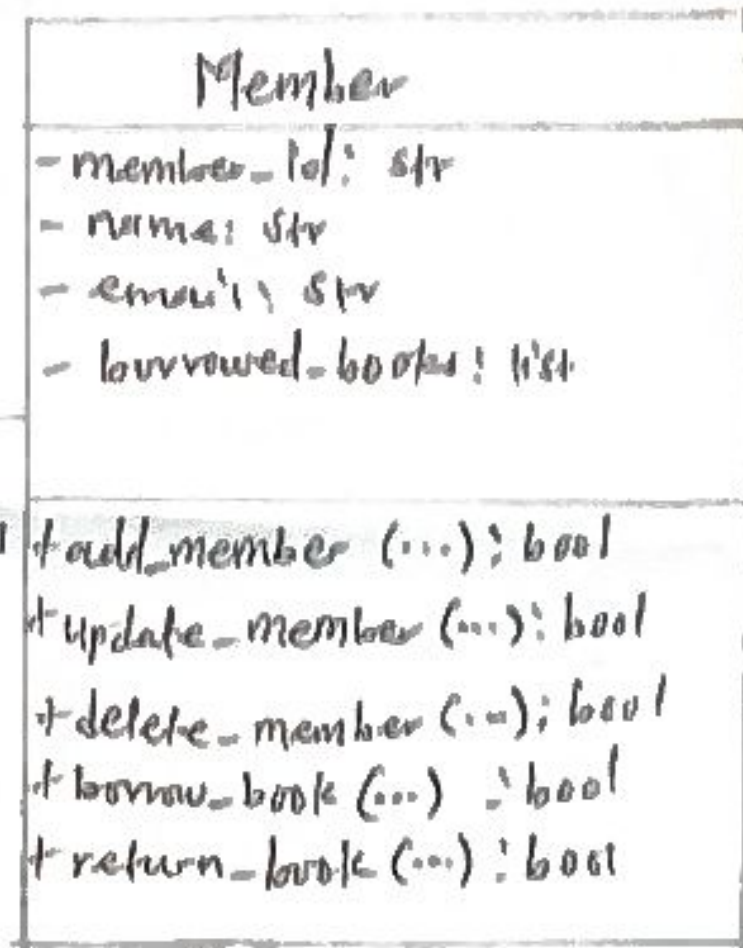 Member
- member_id: str
- name: str
- email: str
- borrowed_books: list
+ add_member (...): bool
+ update_member (...): bool
+ delete_member (...): bool
+ borrow_book (...) : bool
+ return_book (...) : bool